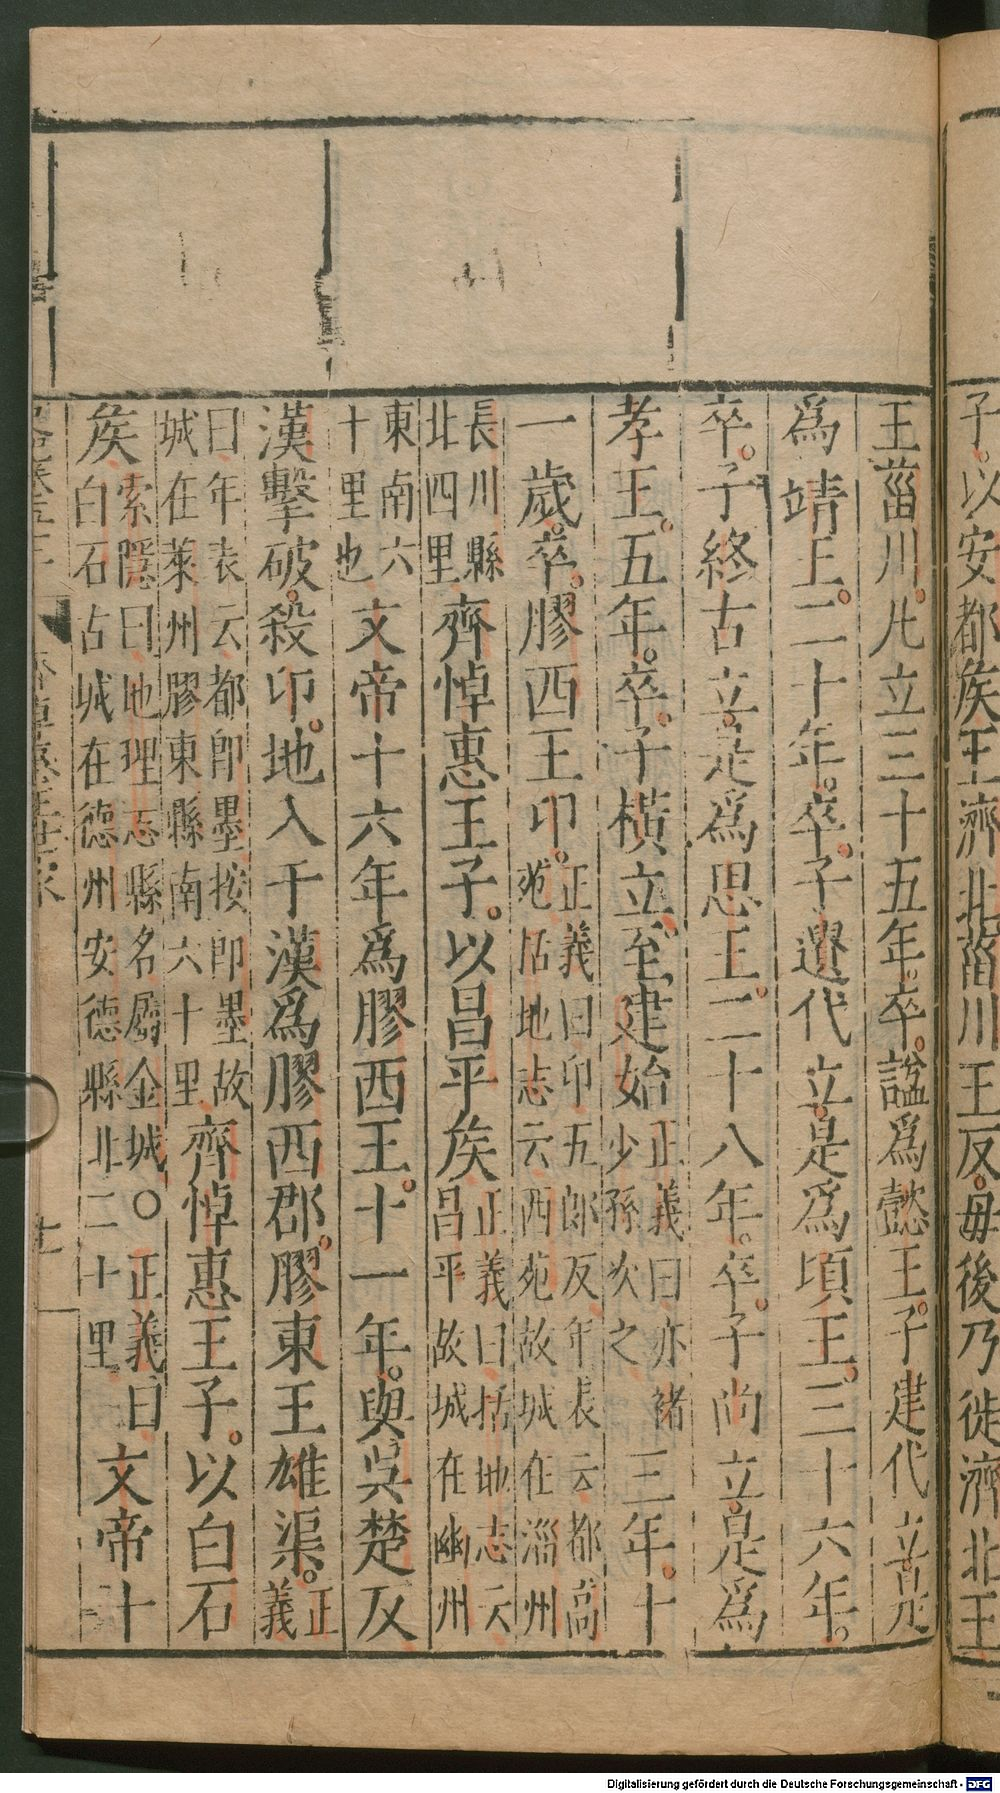 子。以安都矦王濟北菑川王反。毋後。乃徙濟北王
王菑川。凡立三十五年。卒。諡爲懿王。子建代立。是
爲靖王。二十年。卒。子遺代立。是爲頃王。三十六年。
卒。子終古立。是爲思王。二十八年。卒。子尚立。是爲
孝王。五年。卒。子橫立。至建始
正義曰亦褚
少孫次之
三年。十
一歲。卒。膠西王卬。
正義曰卬五郎反年表云都高
苑括地志云西苑故城在淄州
長川縣
北四里
齊悼惠王子。以昌平矦
正義曰括地志云
昌平故城在幽州
東南六
十里也
文帝十六年爲膠西王。十一年。與吳楚反
漢擊破。殺卬。地入于漢爲膠西郡。膠東王雄渠。
正
義
曰年表云都卽墨按卽墨故
城在萊州膠東縣南六十里
齊悼惠王子。以白石
矦
索隱曰地理志縣名屬金城〇正義曰
白石古城在德州安德縣北二十里
文帝十
齊悼惠王世家
Digitalisierung gefördert durch die Deutsche Forschungsgemeinschaft - DFG